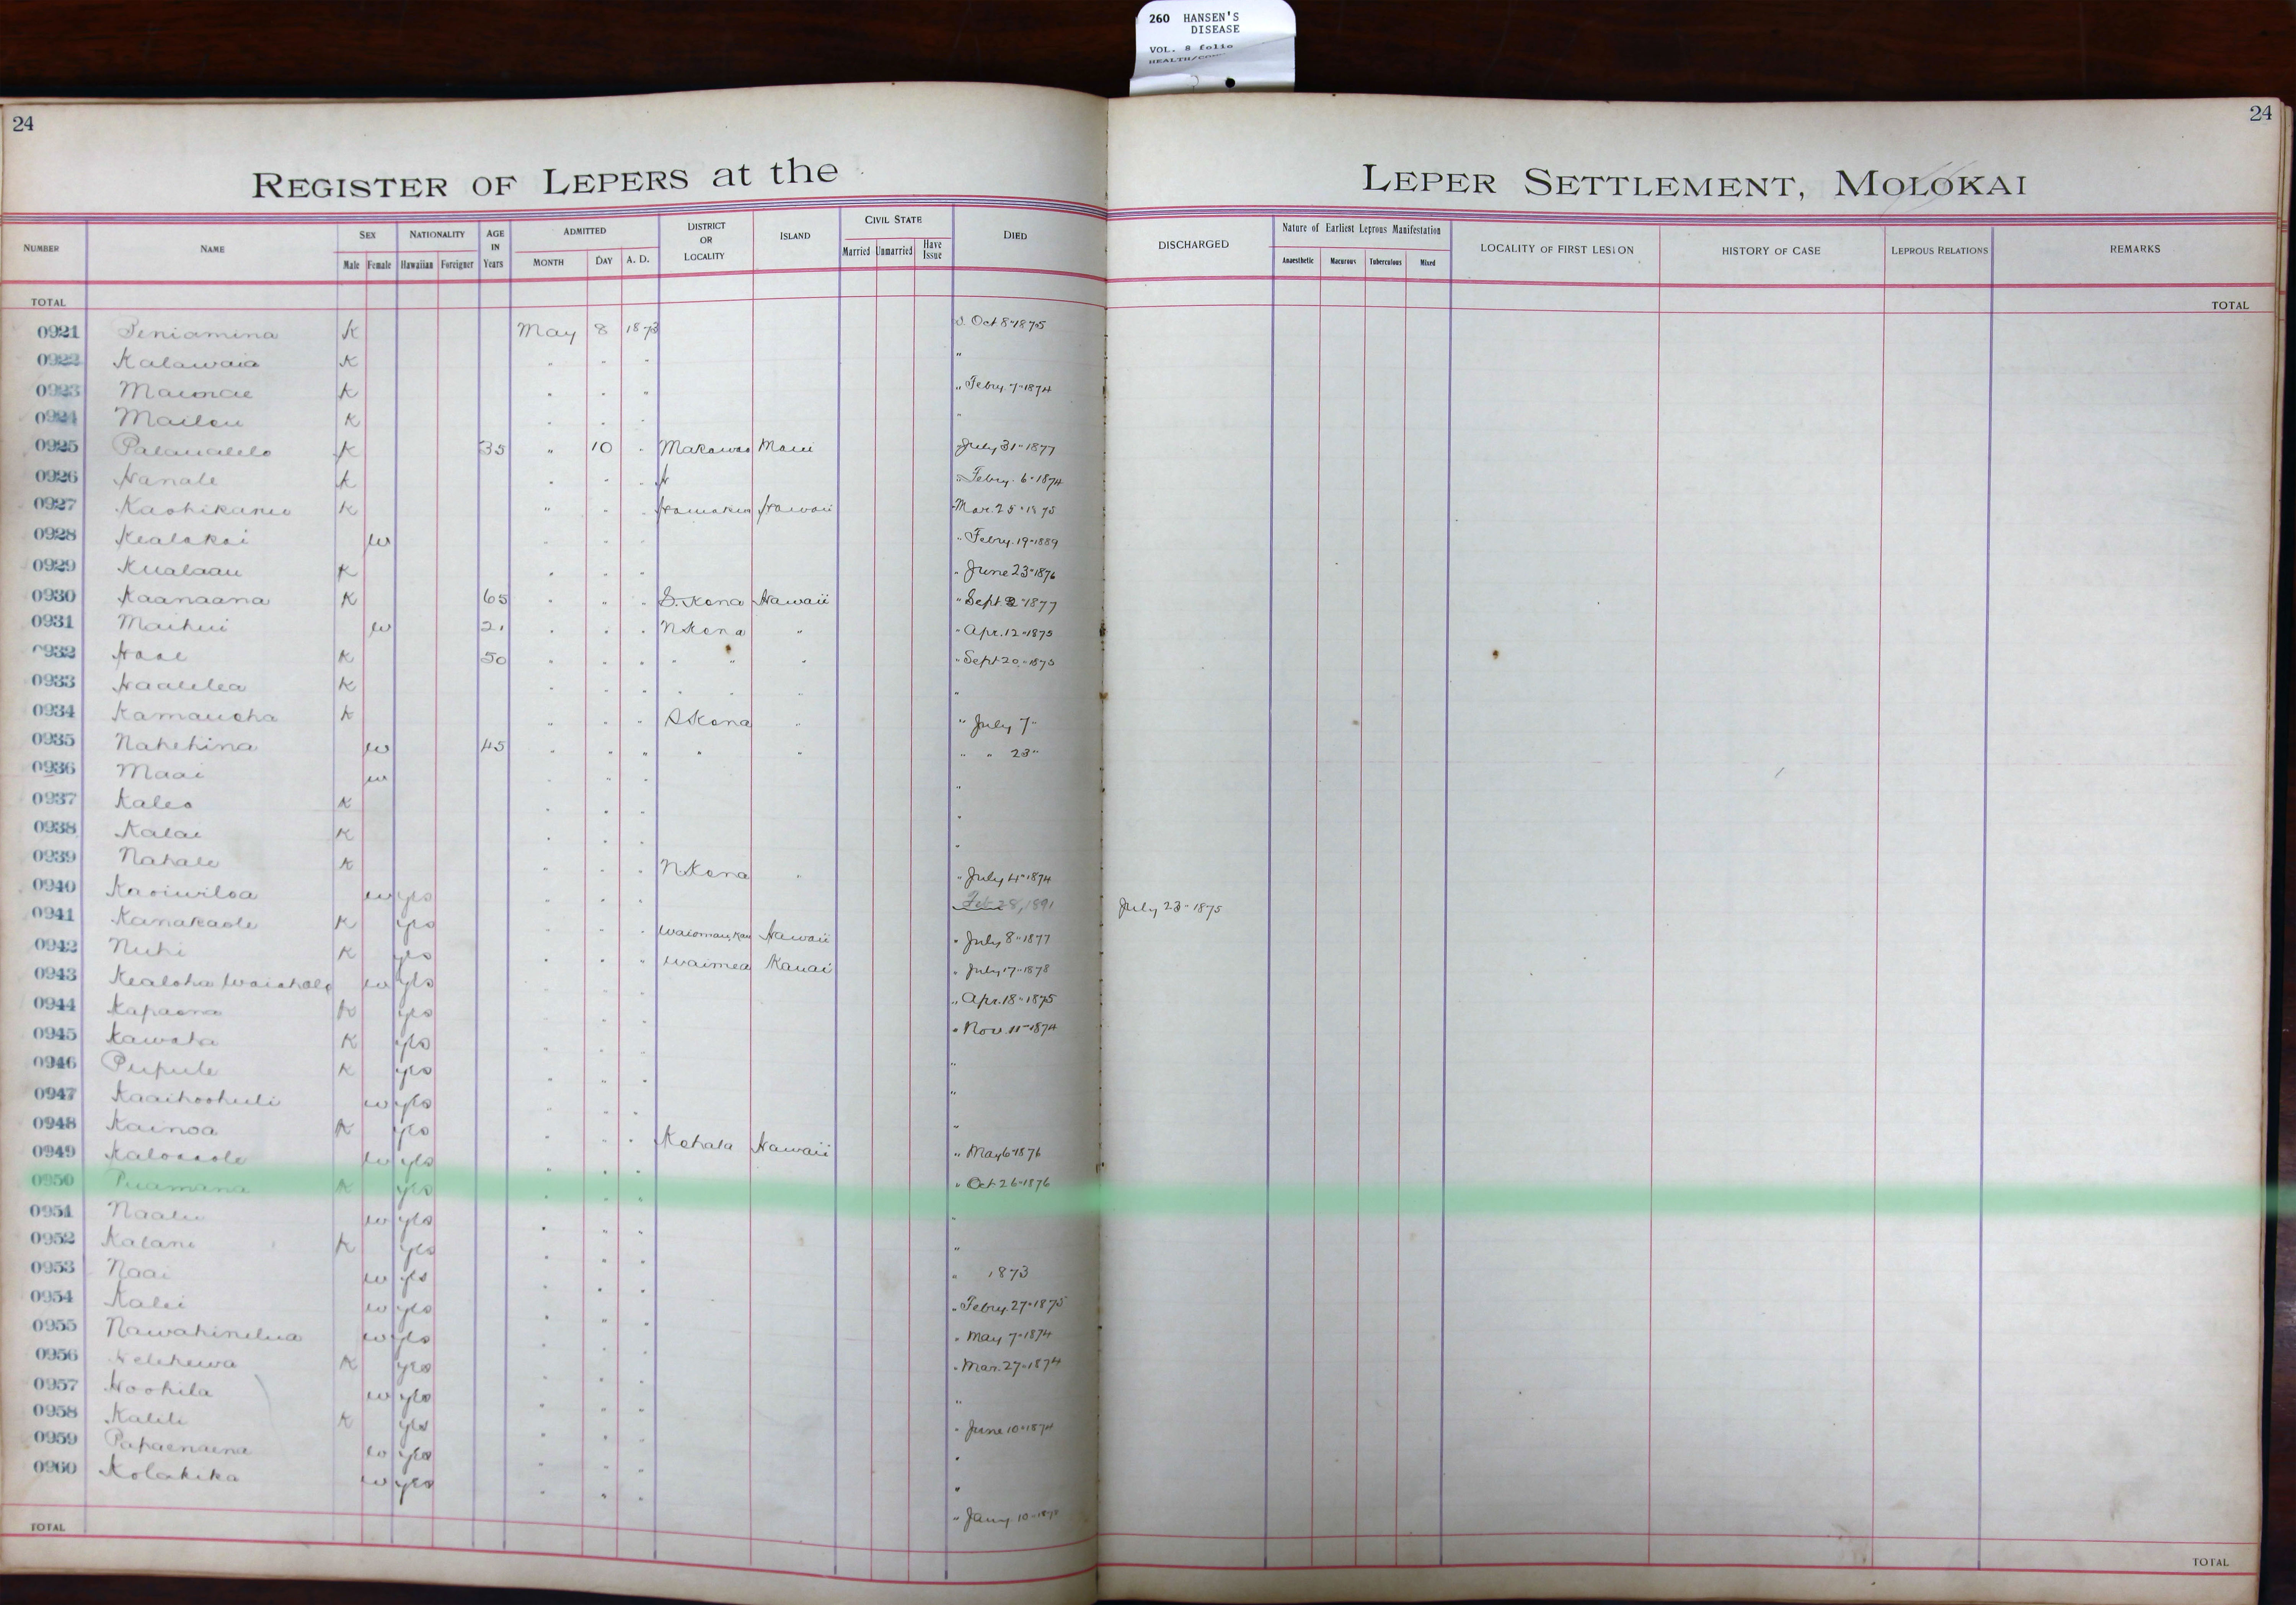 260 HANSEN'S
DISEASE
VOL. 8 folio
HEALTH/
24
24
REGISTER OF LEPERS at the LEPER SETTLEMENT, MOLOKAI
NUMBER NAME SEX Male Female NATIONALITY Hawaiian Foreigner AGE IN Years ADMITTED MONTH DAY A. D. DISTRICT OR LOCALITY ISLAND CIVIL STATE Married Unmarried Have Issue DIED DISCHARGED Nature of Earliest Leprous Manifestation Anaesthetic Macurous Tuberculous Mixed LOCALITY OF FIRST LESION HISTORY OF CASE LEPROUS RELATIONS REMARKS
TOTAL TOTAL
0921 Peniamina K May 8 1873 Oct 8" 1875
0922 Kalawaia K " " " "
0923 Maunae K " " " " Febry. 7" 1874
0924 K " " " "
0925 K 35 " 10 " Makawao Maui July 31" 1877
0926 Hanale K " " " " Febry. 6" 1874
0927 K " " " Hamakua Hawaii Mar. 25" 1875
0928 Kealakai w " " " " Febry. 19" 1889
0929 Kualaau K " " " " June 23" 1876
0930 Kaanaana K 65 " " " S. Kona Hawaii " Sept 2" 1877
0931 Maihui w 21 " " " N Kona " " Apr. 12" 1875
0932 K 50 " " " " " " " Sept 20" 1875
0933 Haalelea K " " " " " " "
0934 Kamauoha K " " " S Kona " " July 7"
0935 Nahehina w 45 " " " " " " " 23"
0936 Maai w " " " "
0937 Kaleo K " " " "
0938 Kalai K " " " "
0939 Nahale K " " " N Kona " " July 4" 1874
0940 Kaoiwiloa w yes " " " Feb 28, 1891 July 23" 1875
0941 Kanakaole K yes " " " Hawaii " July 8" 1877
0942 Nuhi K yes " " " Waimea Kauai " July 17" 1878
0943 Kealoha w yes " " " " Apr. 18" 1875
0944 Kapaona K yes " " " " Nov. 11" 1874
0945 Kawaha K yes " " " "
0946 Pupule K yes " " " "
0947 Kaaihoohuli w yes " " " "
0948 Kainoa K yes " " " Kohala Hawaii " May 6" 1876
0949 w yes " " " " Oct 26" 1876
0950 Puamana K yes " " " "
0951 w yes " " " "
0952 Kalani K yes " " " " 1873
0953 Naai w yes " " " " Febry. 27" 1875
0954 Kalei w yes " " " " May 7" 1874
0955 Nawahinelua w yes " " " " Mar. 27" 1874
0956 K yes " " " "
0957 Hoohila w yes " " " " June 10" 1874
0958 Kalili K yes " " " "
0959 Papaenaena w yes " " " "
0960 Kolakika w yes " " " " Jany. 10"
TOTAL TOTAL